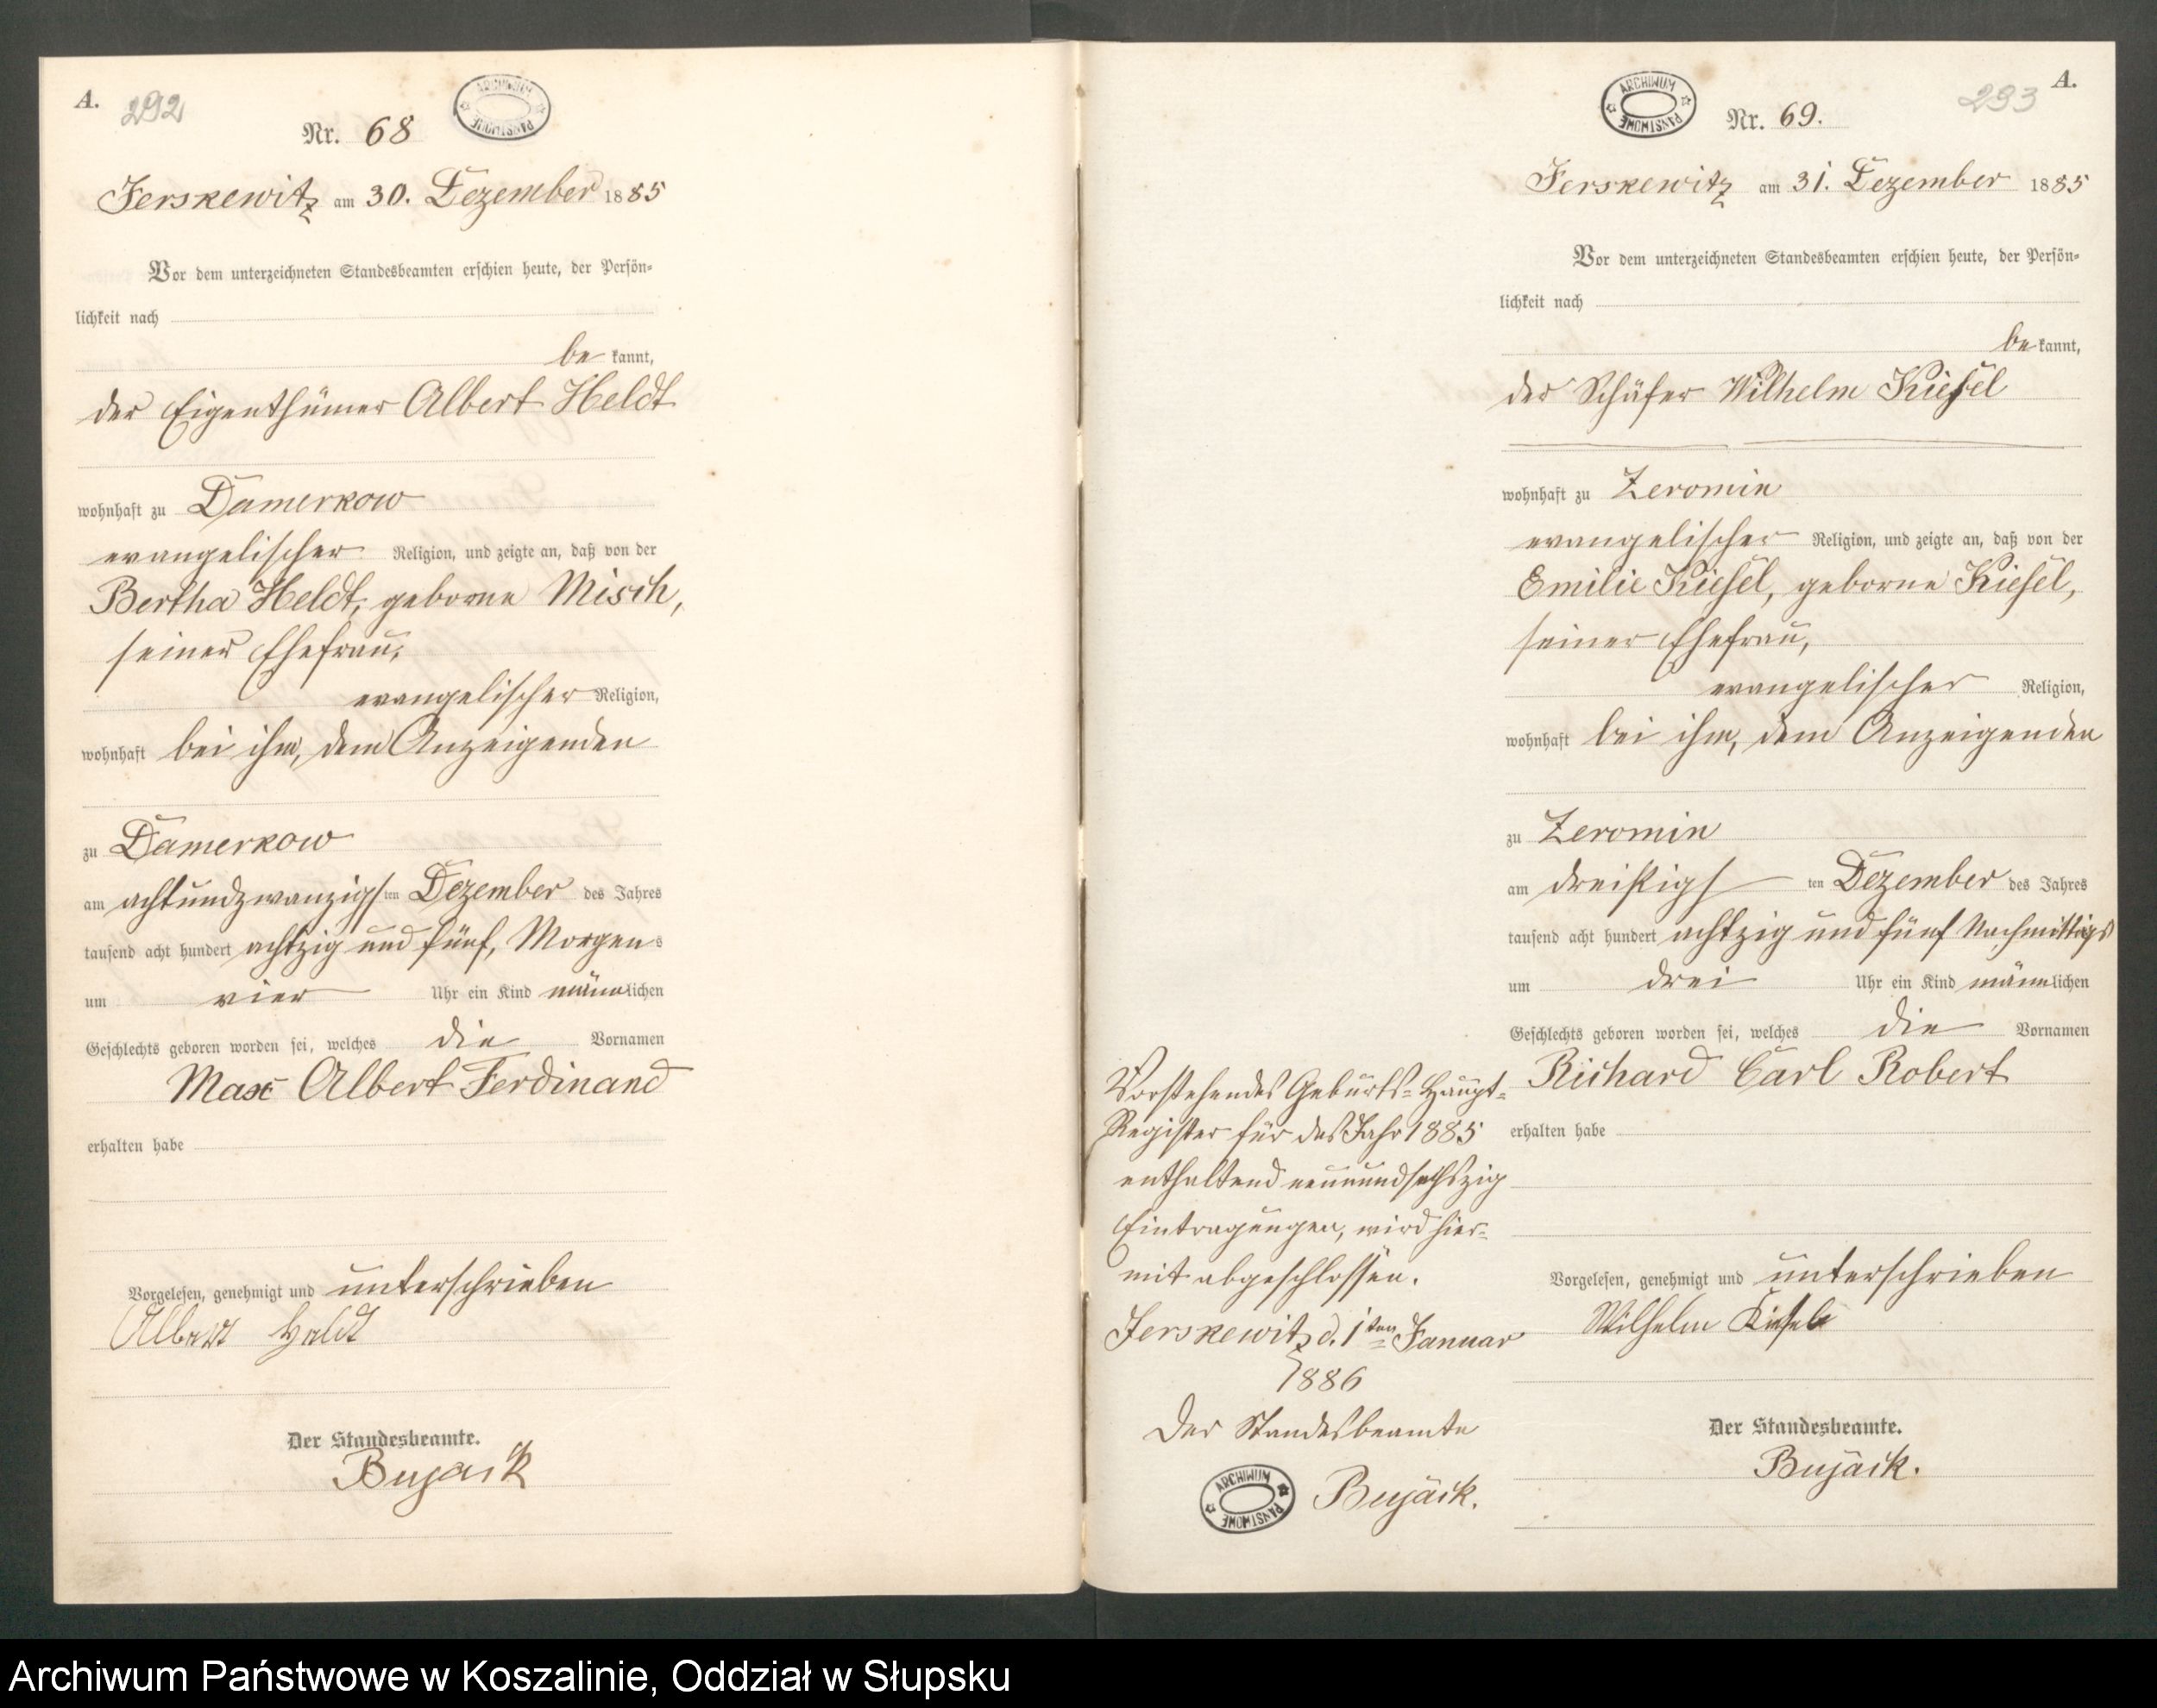 A.
292
Nr. 68
ARCHIWUM PAŃSTWOWE
Jerskewitz am 30. Dezember 1885
Vor dem unterzeichneten Standesbeamten erschien heute, der Persön-
lichkeit nach
be kannt,
der Eigenthümer Albert Heldt
wohnhaft zu Damerkow
evangelischer Religion, und zeigte an, daß von der
Bertha Heldt, geborne Misch,
seiner Ehefrau,
evangelischer Religion,
wohnhaft bei ihm, dem Anzeigenden
zu Damerkow
am achtundzwanzigsten Dezember des Jahres
tausend acht hundert achtzig und fünf, Morgens
um vier Uhr ein Kind männlichen
Geschlechts geboren worden sei, welches die Vornamen
Max Albert Ferdinand
erhalten habe
Vorgelesen, genehmigt und unterschrieben
Albert Heldt
Der Standesbeamte.
Bujack
A.
293
ARCHIWUM PAŃSTWOWE
Nr. 69.
Jerskewitz am 31. Dezember 1885
Vor dem unterzeichneten Standesbeamten erschien heute, der Persön-
lichkeit nach
be kannt,
der Schäfer Wilhelm Kiesel
wohnhaft zu Zeromin
evangelischer Religion, und zeigte an, daß von der
Emilie Kiesel, geborne Kiesel,
seiner Ehefrau,
evangelischer Religion,
wohnhaft bei ihm, dem Anzeigenden
zu Zeromin
am dreißigsten Dezember des Jahres
tausend acht hundert achtzig und fünf Nachmittags
um drei Uhr ein Kind männlichen
Geschlechts geboren worden sei, welches die Vornamen
Richard Carl Robert
erhalten habe
Vorgelesen, genehmigt und unterschrieben
Wilhelm Kiesel
Der Standesbeamte.
Bujack.
Vorstehendes Geburts-Haupt-
Register für das Jahr 1885
enthaltend neunundsechszig
Eintragungen, wird hier-
mit abgeschlossen.
Jerskewitz d. 1ten Januar
1886
Der Standesbeamte
ARCHIWUM PAŃSTWOWE
Bujack.
Archiwum Państwowe w Koszalinie, Oddział w Słupsku